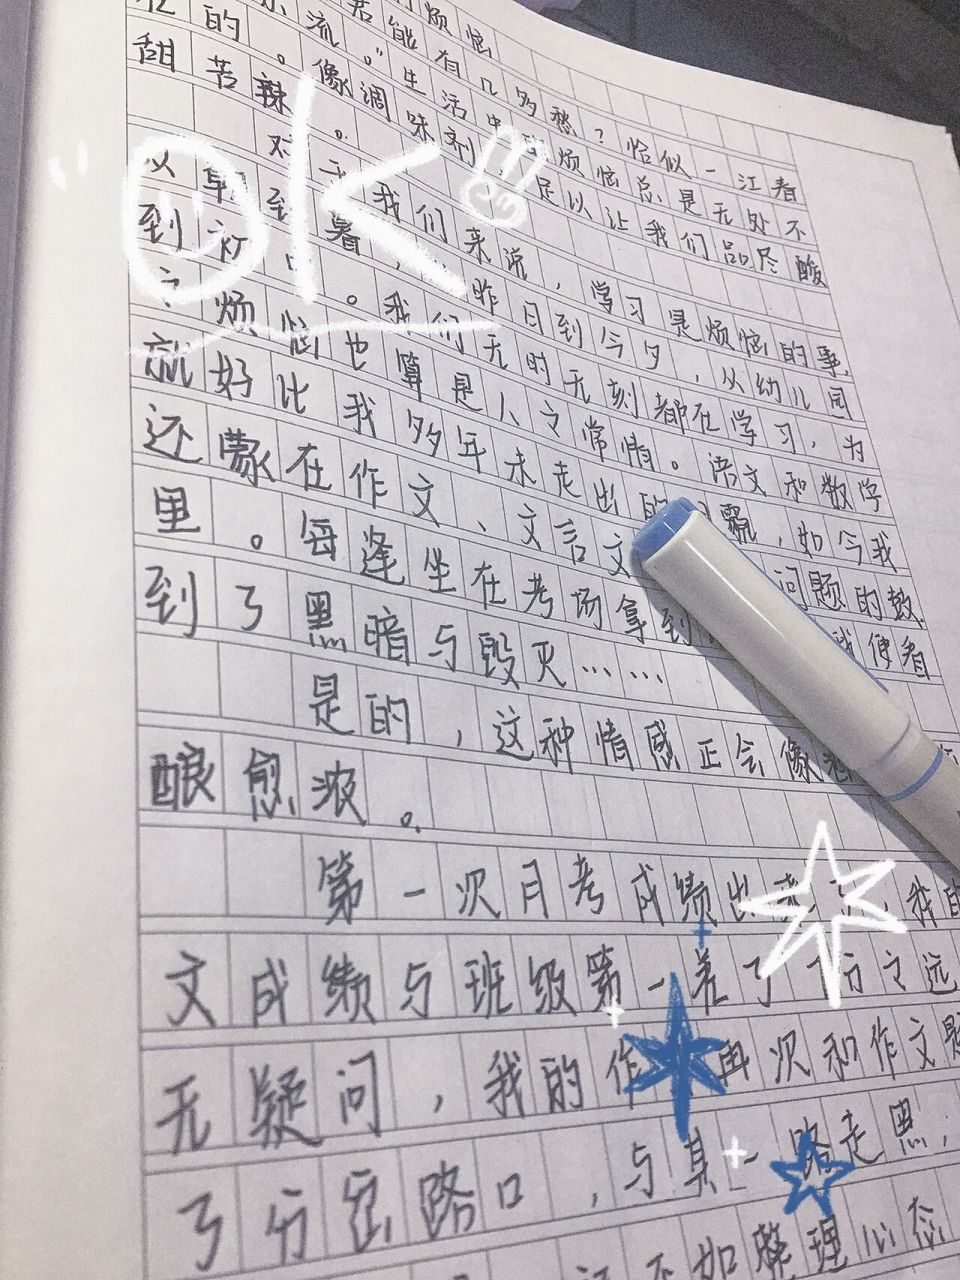 烦恼
的。 君能有几多愁？恰似一江春
流。”生活中的烦恼总是无处不
。像调味剂，足以让我们品尽酸
甜苦辣。
对于我们来说，学习是烦恼的事，
从朝到暮，昨日到今夕，从幼儿园
到 。我们无时无刻都在学习，为
之烦恼也算是人之常情。语文和数学
就好比我多年未走出的 ，如今我
还蒙在作文、文言文 问题的数
里。每逢坐在考场拿到 我便看
到了黑暗与毁灭……
是的，这种情感正会像
酿愈浓。
第一次月考成绩出来 ，我的
文成绩与班级第一差了十分之远
无疑问，我的作 再次和作文题
了分岔路口，与其一路走黑，
不如整理心态
OK